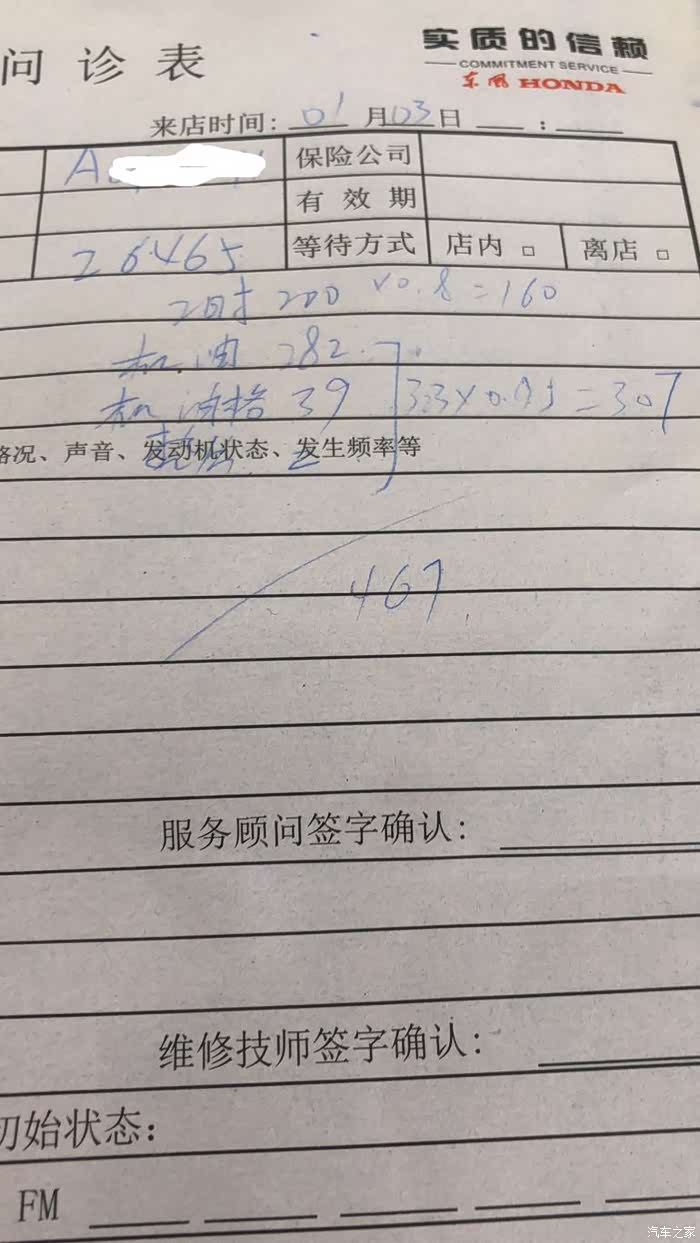 实质的信赖
COMMITMENT SERVICE
东风 HONDA
问诊表
来店时间: 01 月 03 日 :
A 保险公司
有效期
26465 等待方式 店内 □ 离店 □
工时 200 × 0.8 = 160
机油 282
机油格 39 = 307
路况、声音、发动机状态、发生频率等
467
服务顾问签字确认:
维修技师签字确认:
初始状态:
FM
汽车之家